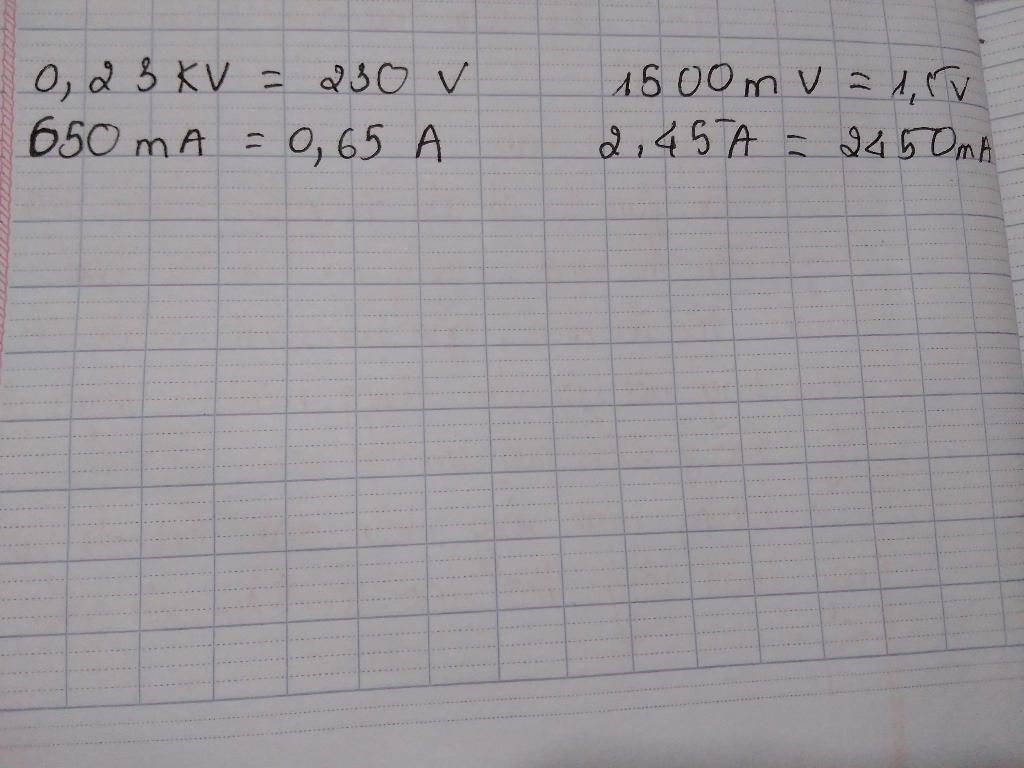 0,23 KV = 230 V 1500 m V = 1,5 V
650 mA = 0,65 A 2,45 A = 2450 mA